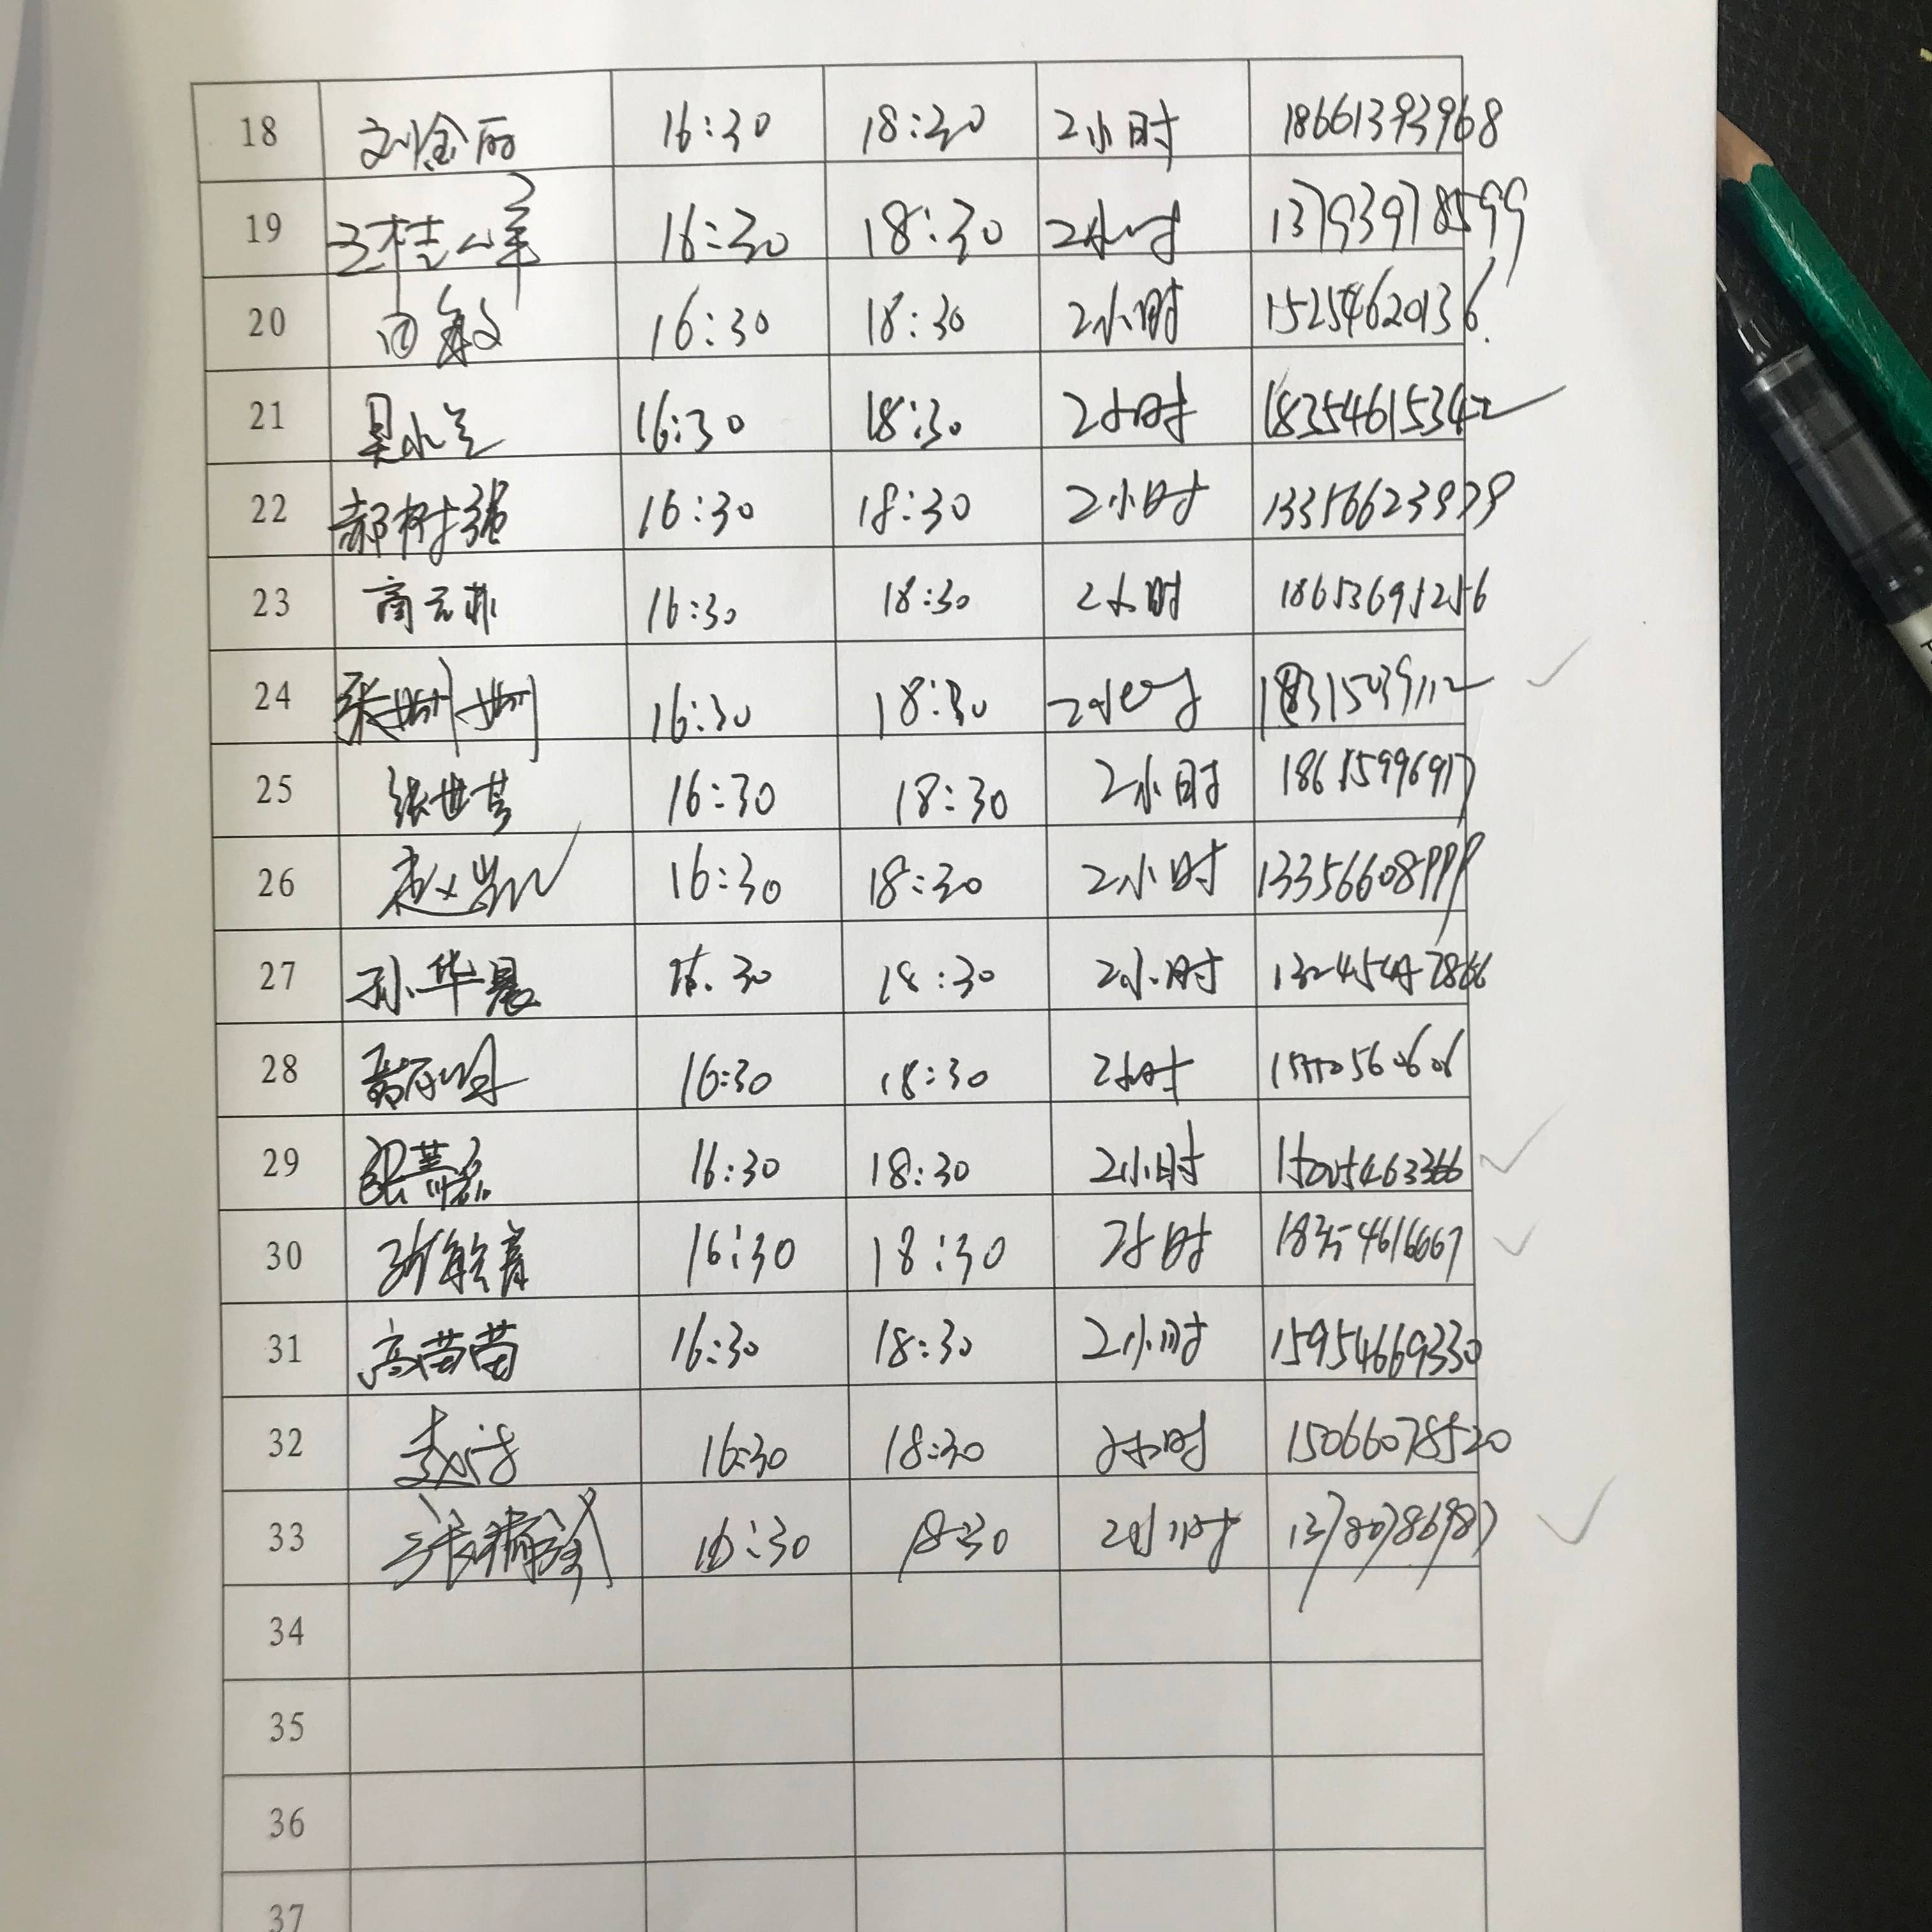 18 刘金丽 16:30 18:30 2小时 18661393968
19 王桂峰 16:30 18:30 2小时 13793978599
20 向敏 16:30 18:30 2小时 15254620136
21 16:30 18:30 2小时 18354615342
22 郝树强 16:30 18:30 2小时 13356623979
23 商云非 16:30 18:30 2小时 18653695256
24 张姗姗 16:30 18:30 2小时
25 张世芳 16:30 18:30 2小时 18615996917
26 赵凯 16:30 18:30 2小时 13356608999
27 孙华晨 16:30 18:30 2小时
28 16:30 18:30 2小时
29 张燕 16:30 18:30 2小时 15005463366
30 16:30 18:30 2小时 18354616667
31 高苗苗 16:30 18:30 2小时 15954669330
32 16:30 18:30 2小时 15066078520
33 16:30 18:30 2小时 13780786987
34
35
36
37